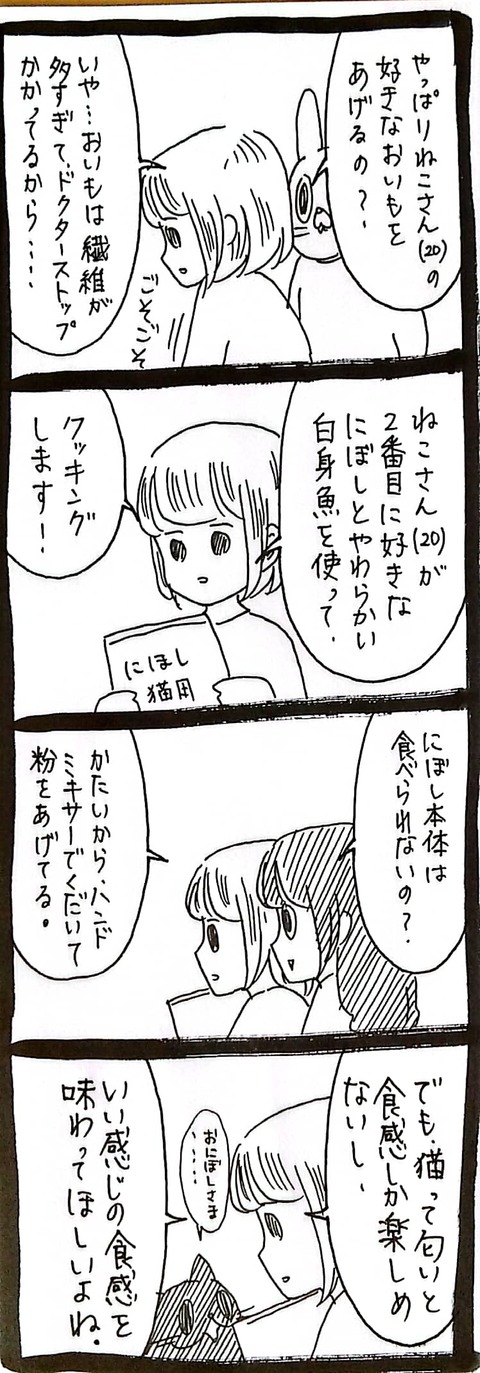 やっぱりねこさん(20)の
好きなおいもを
あげるの?
いや…おいもは繊維が
多すぎて、ドクターストップ
かかってるから‥‥
ごそごそ
ねこさん(20)が
2番目に好きな
にぼしとやわらかい
白身魚を使って、
クッキング
します!
にほし
猫用
にぼし本体は
食べられないの?
かたいから、ハンド
ミキサーでくだいて
粉をあげてる。
でも、猫って匂いと
食感しか楽しめ
ないし、
おにぼしさま
‥‥
いい感じの食感を
味わってほしいよね。